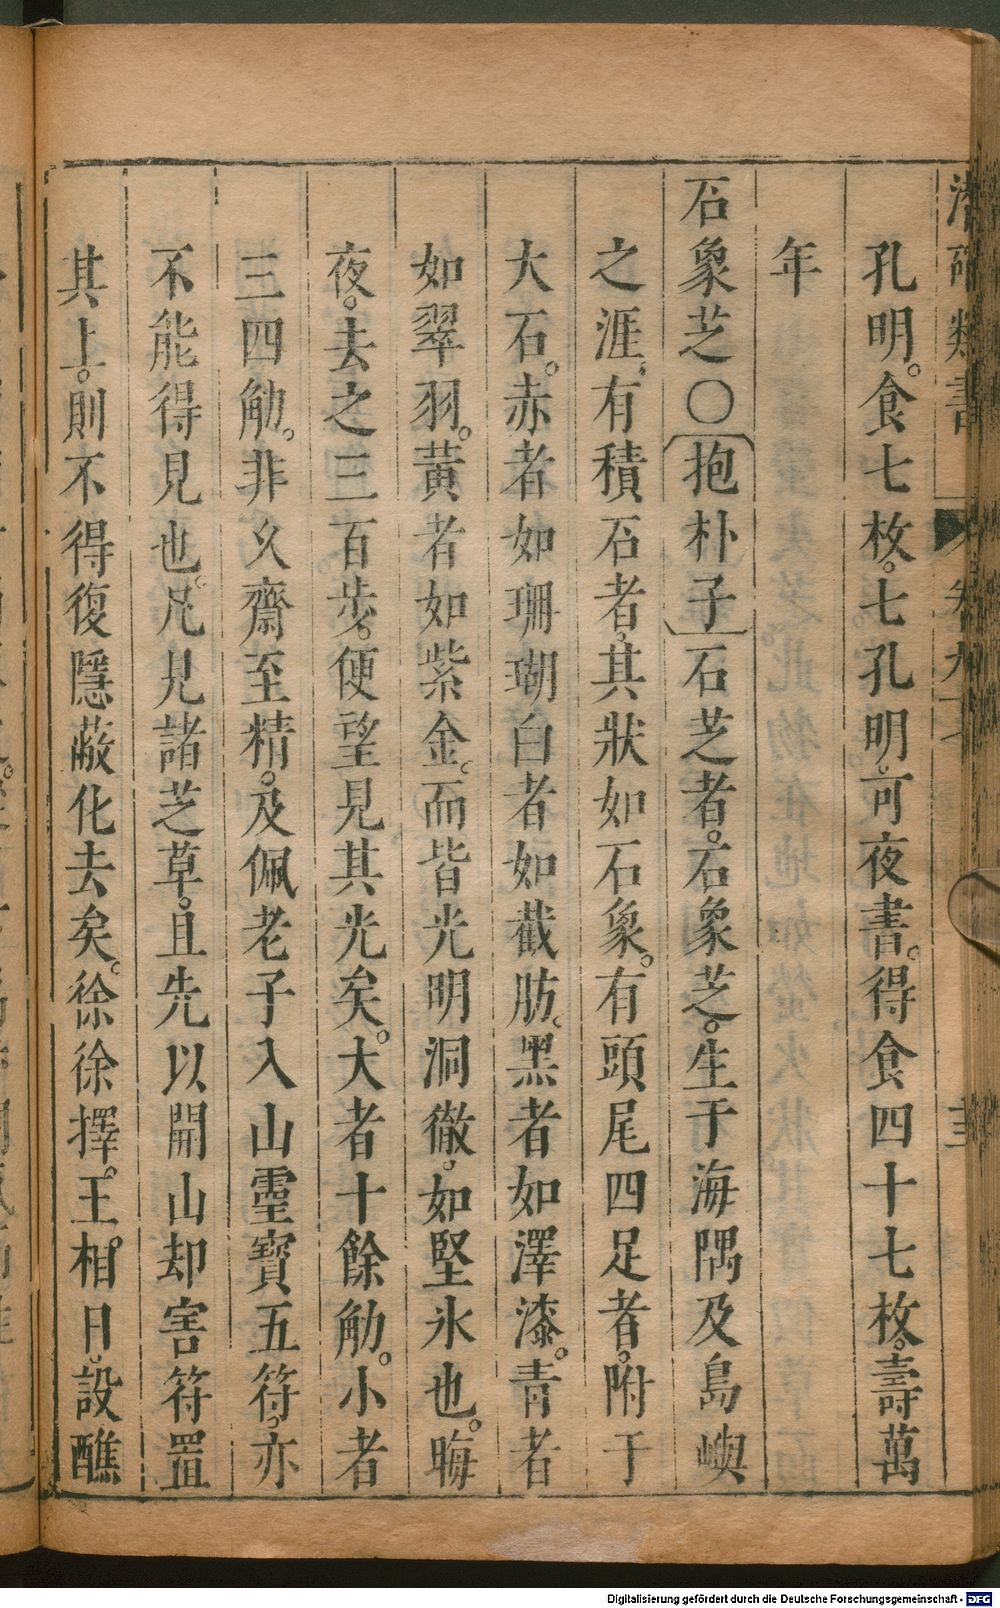 潛確類書 卷九十 三
孔明。食七枚。七孔明。可夜書。得食四十七枚。壽萬
年
石象芝○〔抱朴子〕石芝者。石象芝。生于海隅及島嶼
之涯。有積石者。其狀如石象。有頭尾四足者。附于
大石。赤者如珊瑚白者如截肪。黑者如澤漆。青者
如翠羽。黃者如紫金。而皆光明洞徹。如堅氷也。晦
夜。去之三百步。便望見其光矣。大者十餘觔。小者
三四觔。非久齋至精。及佩老子入山靈寶五符。亦
不能得見也。凡見諸芝草。且先以開山却害符置
其上。則不得復隱蔽化去矣。徐徐擇。王。相日。設醮
Digitalisierung gefördert durch die Deutsche Forschungsgemeinschaft - DFG